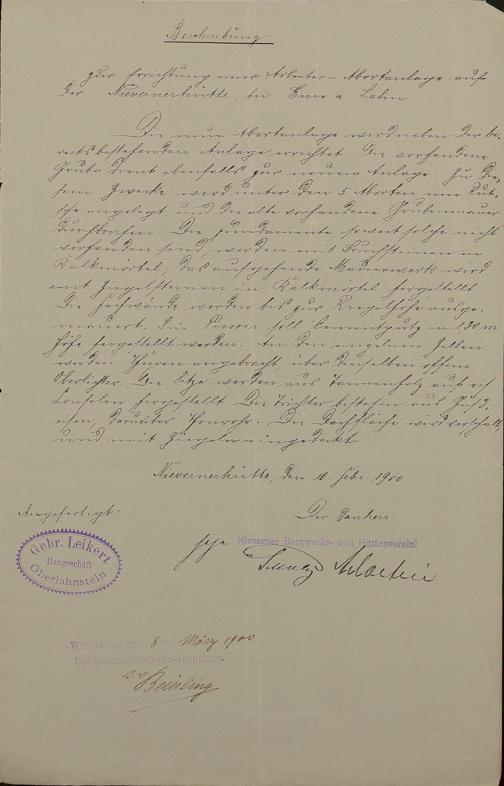 Beschreibung
zur Errichtung einer Arbeiter-Abortanlage auf
der Nievernerhütte, bei Ems a. Lahn.
Die neue Abortanlage wird neben der be-
reits bestehenden Anlage errichtet. Die vorhandene
Grube dient ebenfalls zur neuen Anlage. Zu die-
sem Zwecke wird unter den 5 Aborten eine Rut-
sche angelegt und die alte vorhandene Grubenmauer
durchbrochen. Die Fundamente, soweit solche nicht
vorhanden sind, werden mit Bruchsteinen in
Kalkmörtel, das aufgehende Mauerwerk wird
mit Ziegelsteinen in Kalkmörtel hergestellt.
Die Fachwände werden bis zur Riegelhöhe ausge-
mauert. Im Pissoir soll Cementputz in 1.30 m
Höhe hergestellt werden. An den einzelnen Zellen
werden Thüren angebracht, über denselben offene
Oberlichter. Die Sitze werden aus Tannenholz auf
Consolen hergestellt. Die Trichter bestehen aus
darunter Thonrohr. Die Dachfläche wird verschalt
und mit Ziegeln eingedeckt.
Nievernerhütte, den 10 Febr. 1900
Angefertigt:
Der Bauherr.
Gebr. Leikert
Baugeschäft
Oberlahnstein
Nieverner Bergwerks- und Hüttenverein
8 März 1900